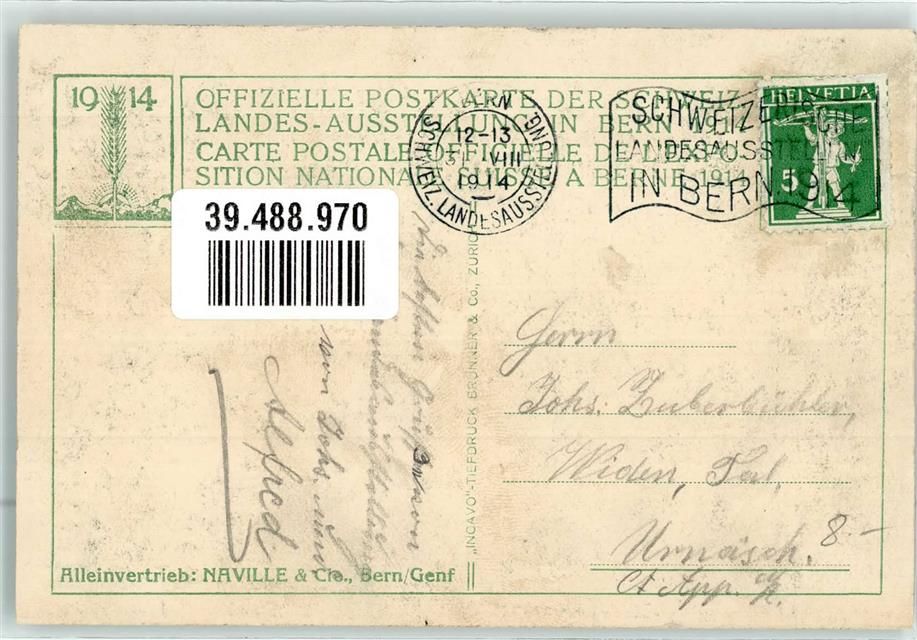 19 14
OFFIZIELLE POSTKARTE DER SCHWEIZ
LANDES-AUSSTELLUNG IN BERN 1914
CARTE POSTALE OFFICIELLE DE L'EXPO
SITION NATIONALE SUISSE A BERNE 1914
BERN
12-13
31 VIII
1914
SCHWEIZ. LANDESAUSSTELLUNG
SCHWEIZERISCHE
LANDESAUSSTELLUNG
IN BERN 1914
HELVETIA
5
39.488.970
Grüße von
von Johs. und
Alfred
"INCAVO"-TIEFDRUCK BRUNNER & Co., ZURICH
Herrn
Johs. Zuberbühler,
Widen, Tal,
Urnäsch.
Ct. App.
8.-
Alleinvertrieb: NAVILLE & Cie., Bern/Genf